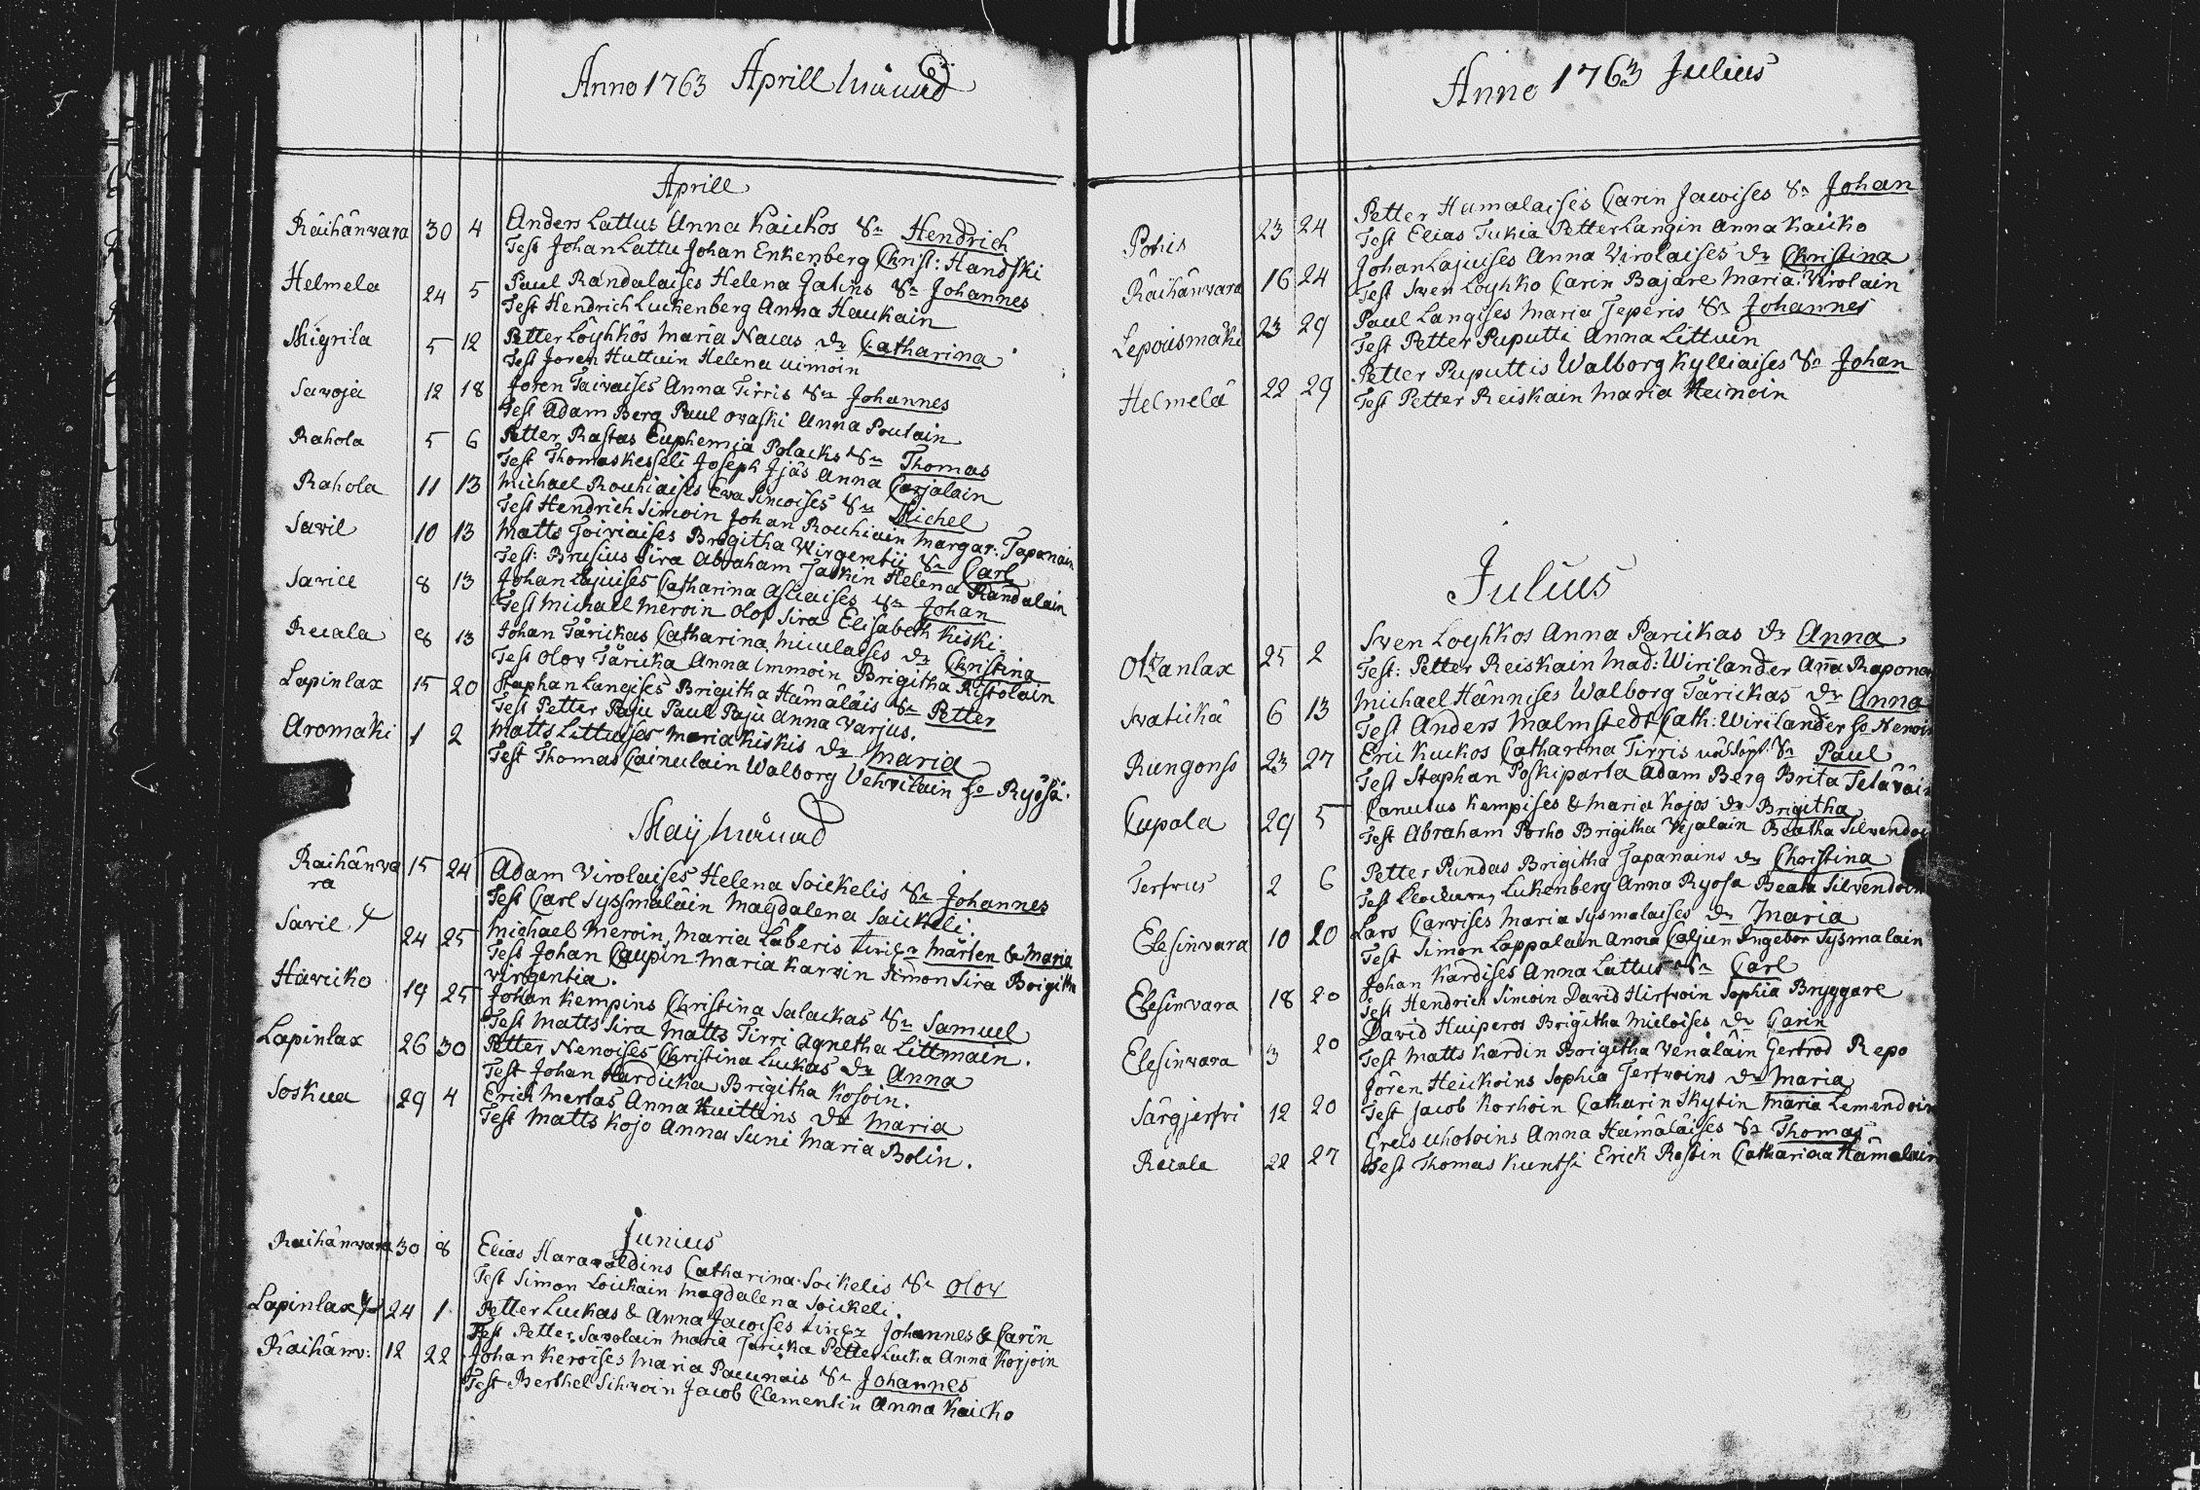 Anno 1763 Aprill månad
Aprill
Räihänvara 30 4 Anders Lattus Anna Kaickos Sn Hendrich
Test Johan Lattu Johan Enkenberg Christ: Handski
Helmela 24 5 Paul Randalaises Helena Jatins Sn Johannes
Test Hendrich Luckenberg Anna Haukain
Migrila 5 12 Petter Löyhkös Maria Naeas dr Catharina
Test Jören Huttuin Helena uimoin
Savoja 12 18 Jören Taivaises Anna Tirris Sn Johannes
Test Adam Berg Paul ovaski Anna Poutain
Rahola 5 6 Petter Rastas Euphemia Polacks Sn Thomas
Test Thomas Kesseli Joseph Jjäs Anna Carjalain
Rahola 11 13 Michael Rouhiaises Eva Simoises Sn Michel
Test Hendrich Simoin Johan Rouhiain Margar: Tapanain
Savil 10 13 Matts Toiviaises Brigitha Wirgentii Sn Carl
Test: Brusius Sira Abraham Taskin Helena Randalain
Savice 8 13 Johan Lajuises Catharina Asciaises Sn Johan
Test Michael Meroin Olof Sira Elisabeth Kiski.
Recala 8 13 Johan Tärickas Catharina Miculaises dr Christina
Test Olov Täricka Anna Immoin Brigitha Ristolain
Lapinlax 15 20 Staphan Langises Brigitha Hämäläis Sn Petter
Test Petter Paju Paul Paju Anna Varjus.
Aromäki 1 2 Matts Littuises Maria Kiskis dr Maria
Test Thomas Cainulain Walborg Vehvilain So Ryösä.
Maÿ månad
Raihänva
ra 15 24 Adam Virolaises Helena Soickelis Sn Johannes
Test Carl Syssmäläin Magdalena Saickeli.
Savil 24 25 Michael Meroin, Maria Läberis tvilr Märten & Maria
Test Johan Caupin Maria Karvin Simon Sira Brigitha
virgentia.
Haricko 19 25 Johan Kempins Christina Salackas Sn Samuel
Test Matts Sira Matts Tirri Agnetha Littmain.
Lapinlax 26 30 Petter Nenoises Christina Luckas dr Anna
Test Johan Hardicka Brigitha Kosoin.
Soskua 29 4 Erich Mertas Anna Kuittins dr Maria
Test Matts Kojo Anna Suni Maria Bolin.
Junius
Raihänvara 30 8 Elias Haravaldins Catharina Soikelis Sn Olov
Test Simon Loickain Magdalena Soickeli.
Lapinlax 24 1 Petter Luckas & Anna Jacoises Johannes & Carin
Test Petter Savolain Maria Täricka Petter Lucka Anna Korjoin
Raihänv: 12 22 Johan Keroises Maria Paeunais Sn Johannes
Test Berthel Sihvoin Jacob Clementin Anna Kaicko
Anno 1763 Julius
Pohis 23 24 Petter Humalaises Carin Jawises Sn Johan
Test Elias Tukia Petter Langin Anna Kaicko
Räihänvara 16 24 Johan Lajuises Anna Virolaises dr Christina
Test Sven Löyhko Carin Bajare Maria Virolain
Lepoismäki 23 29 Paul Langises Maria Teperis Sn Johannes
Test Petter Puputti Anna Littuin
Helmelä 22 29 Petter Puputtis Walborg Kylliaises Sn Johan
Test Petter Reiskain Maria Heinoin
Julius
Otzanlax 25 2 Sven Loyhkos Anna Parickas dr Anna
Test: Petter Reiskain Mad: Wirilander Ana Rapona
Svatickä 6 13 Michael Hännises Walborg Tärickas dr Anna
Test Anders Malmstedt Cath: Wirilander So Neroin
Rungonso 23 27 Eric Kuckos Catharina Tirris Sn Paul
Test Staphan Poskiparta Adam Berg Brita Teläväi
Cupala 29 5 Canutus Kempises & Maria Kojos dr Brigitha
Test Abraham Porho Brigitha Vejalain Beatha Silvendoi
Terfvus 2 6 Petter Pindas Brigitha Tapanains dr Christina
Test Lukenberg Anna Ryosa Beata Silvendoin
Elesinvara 10 20 Lars Carvises Maria Sysmalaises dr Maria
Test Simon Lappalain Anna Caljun Ingebor Sysmalain
Elesinvara 18 20 Johan Kärdises Anna Lattus Sn Carl
Test Hendrich Simoin David Hirfvoin Sophia Bryggare
Elesinvara 3 20 David Huiperos Brigitha Micloises dr Carin
Test Matts Kardin Brigitha Venäläin Gertrod Repo
Särgjerfvi 12 20 Jören Heickoins Sophia Terfvoins dr Maria
Test Jacob Korhoin Catharin Skytin Maria Lemendoin
Recala 22 27 Greis Uhotoins Anna Hämäläises Sn Thomas
Test Thomas Kuntsi Erick Rostin Catharina Hämälain